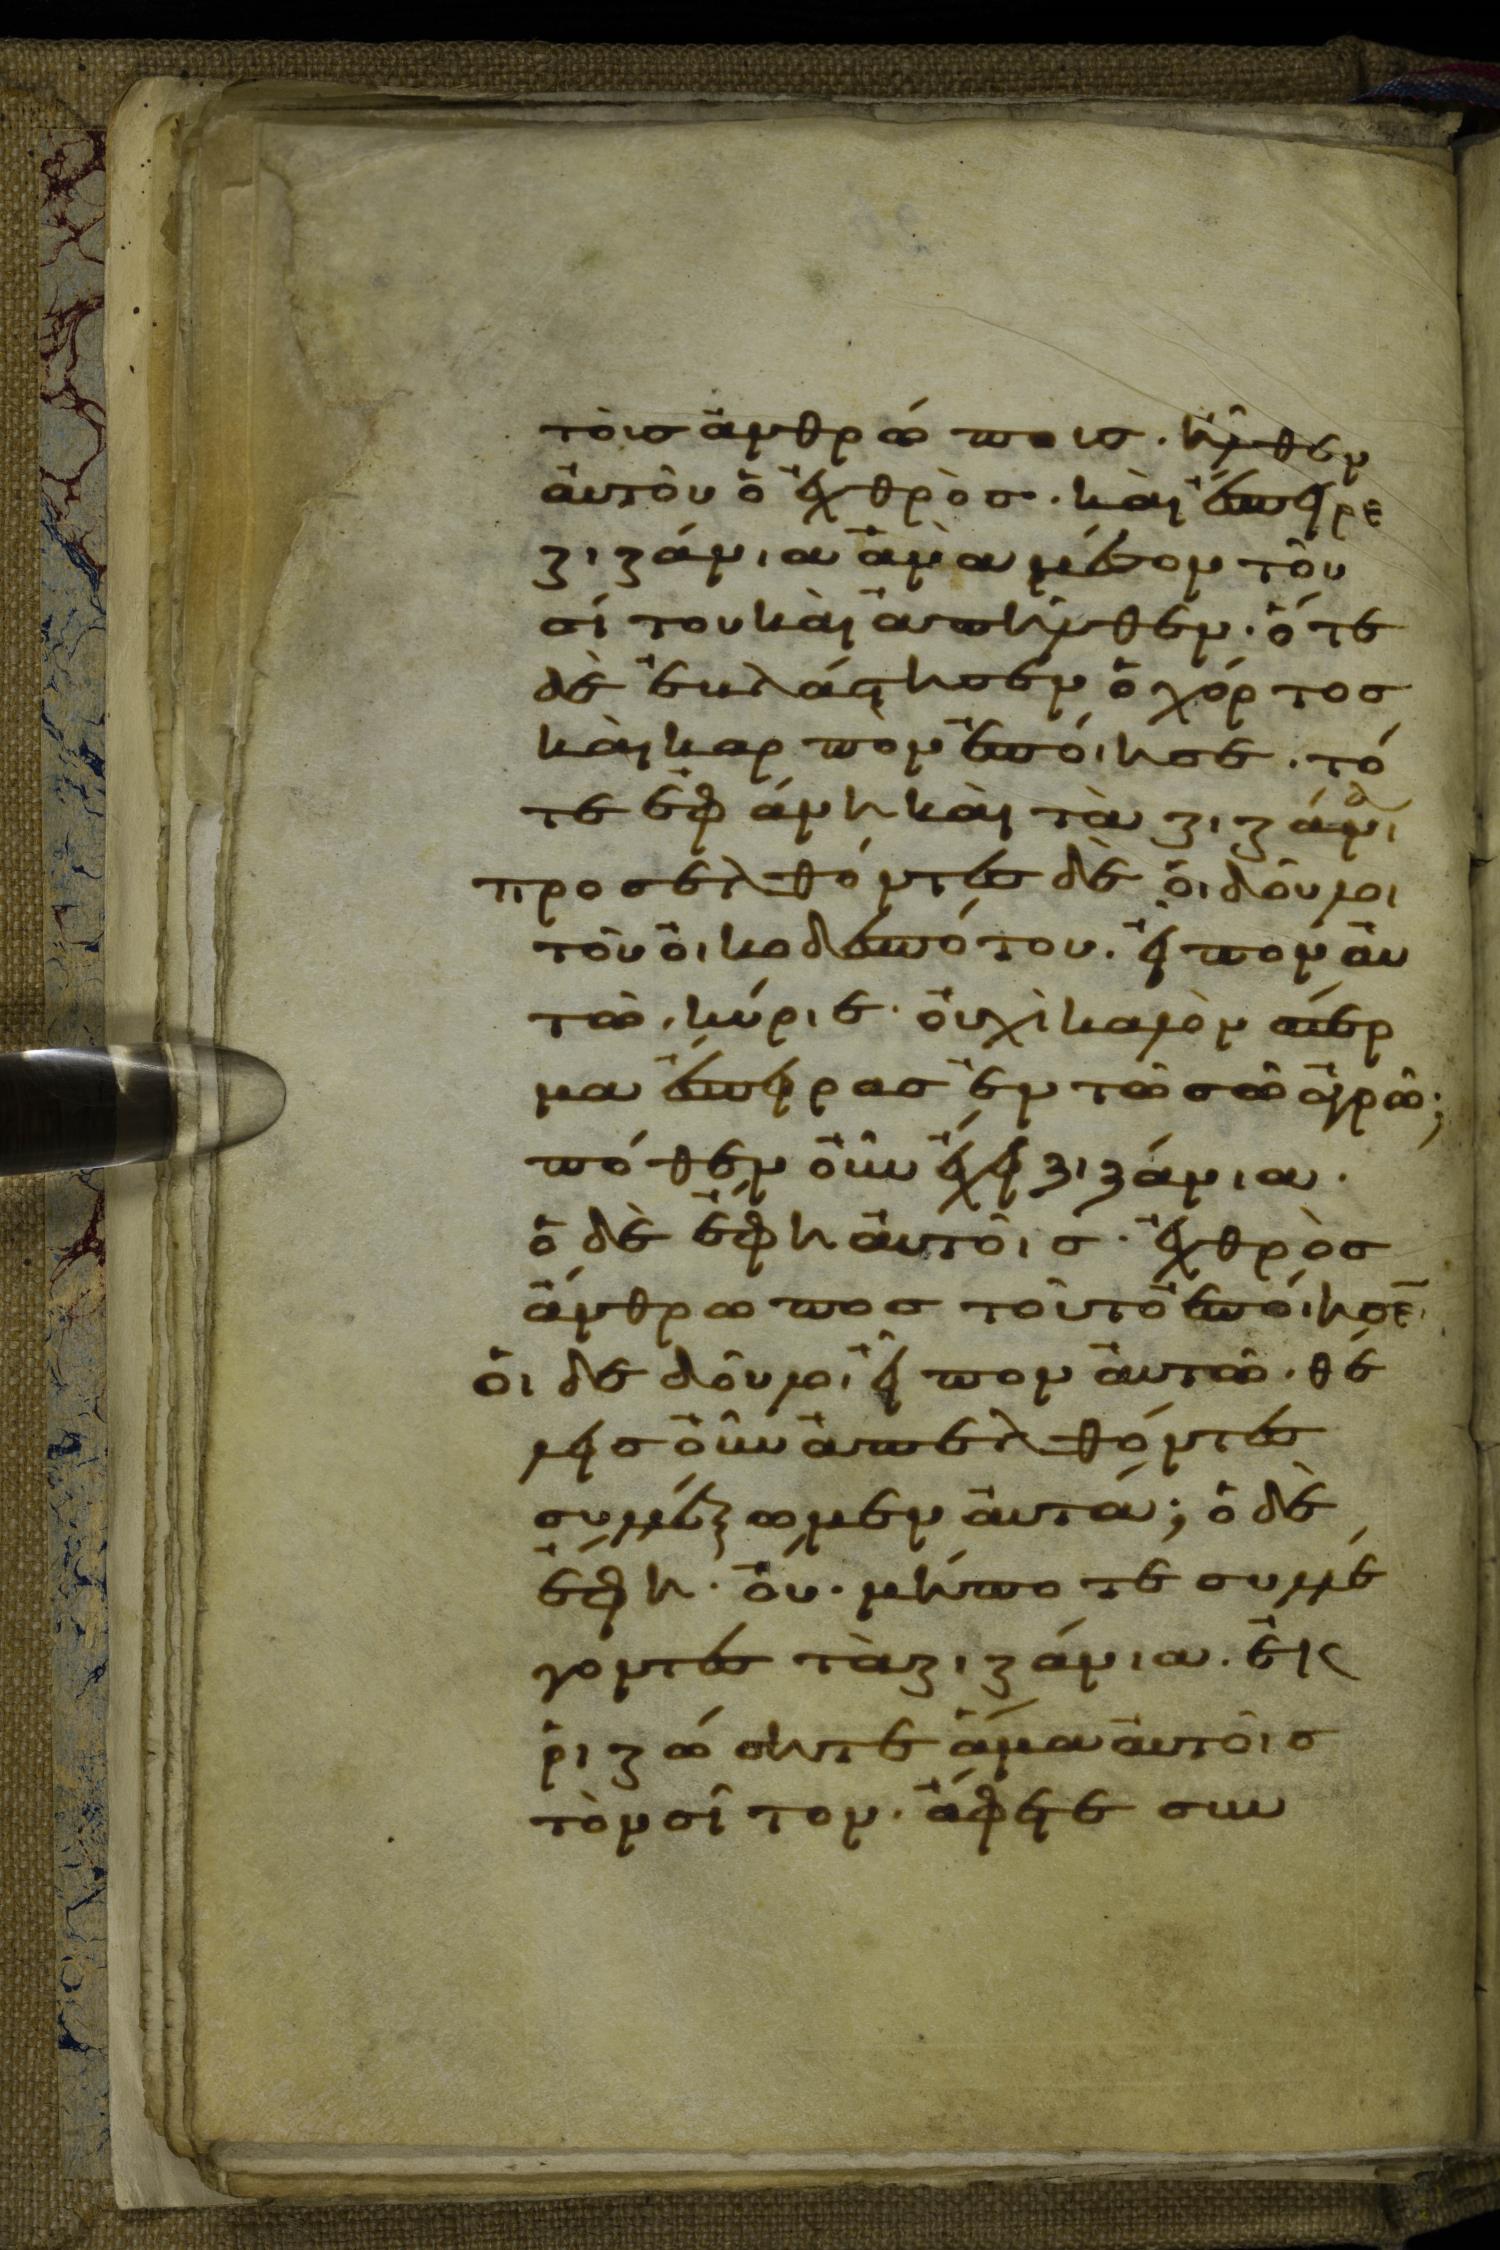 τοῖς ἀνθρώποις· ἦλθεν
αὐτοῦ ὁ ἐχθρὸς· καὶ ἔσπειρε
ζιζάνια ἀνὰ μέσον τοῦ
σίτου καὶ ἀπῆλθεν· ὅτε
δὲ ἐβλάστησεν ὁ χόρτος
καὶ καρπὸν ἐποίησε· τό
τε ἐφάνη καὶ τὰ ζιζάνια
προσελθόντες δὲ οἱ δοῦλοι
τοῦ οἰκοδεσπότου· εἶπον αὐ
τῶ, κύριε· οὐχὶ καλὸν σπέρ
μα ἔσπειρας ἐν τῶ σῶ ἀγρῶ;
πόθεν οὖν ἔχει ζιζάνια·
ὁ δὲ ἔφη αὐτοῖς· ἐχθρὸς
ἄνθρωπος τοῦτο ἐποίησε̄·
οἱ δὲ δοῦλοι εἶπον αὐτῶ· θέ
λεις οὖν ἀπελθόντες
συλλέξωμεν αὐτά; ὁ δὲ
ἔφη· οὔ· μήποτε συλλέ
γοντες τὰ ζιζάνια· ἐκ
ριζώσητε ἅμα αὐτοῖς
τὸν σῖτον· ἄφετε συν